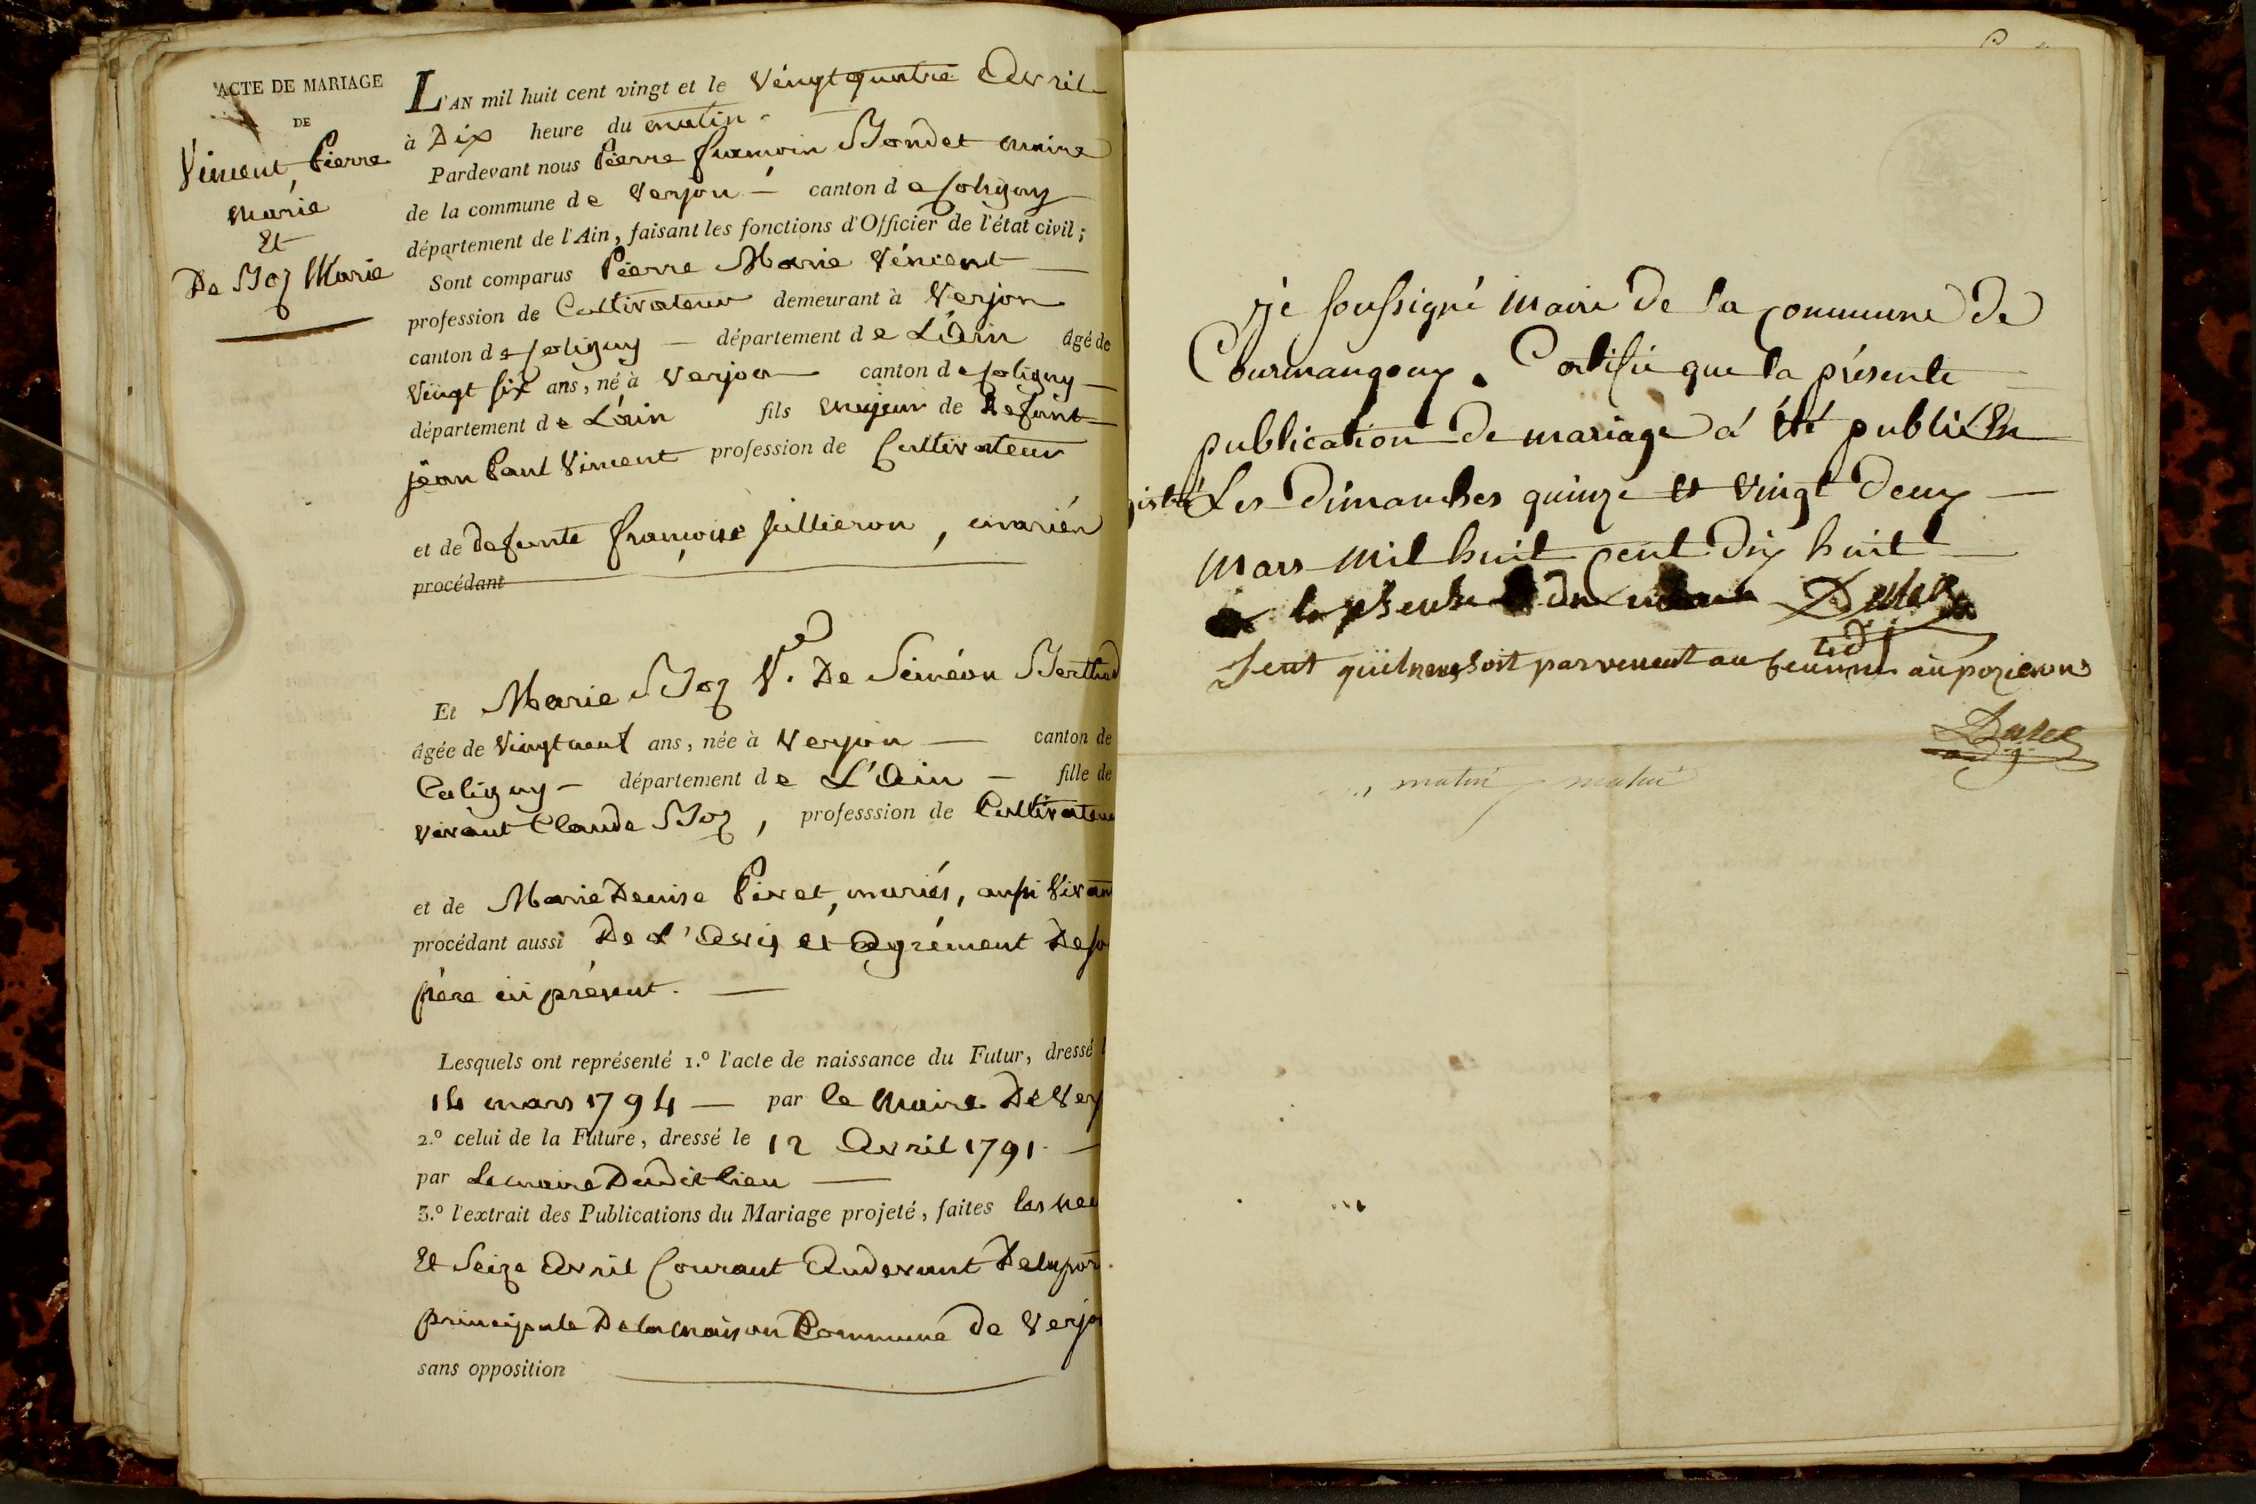 ACTE DE MARIAGE
DE
Vincent, Pierre
marie
Et
De Boz Marie
L'AN mil huit cent vingt et le Vingt quatre Avril
à Dix heure du matin.
Pardevant nous Pierre françois Bondet maire
de la commune de Verjon canton de Coligny
département de l'Ain, faisant les fonctions d'Officier de l'état civil;
Sont comparus Pierre Marie Vincent
profession de Cultivateur demeurant à Verjon
canton de Coligny département de L'Ain âgé de
Vingt six ans, né à Verjon canton de Coligny
département de L'ain fils majeur de Defunt
jean Paul Vincent profession de Cultivateur
et de defunte françoise Jullieron, mariés
procédant
Et Marie Boz Ve. De Siméon Berthod
âgée de Vingt neuf ans, née à Verjon canton de
Coligny département de L'Ain fille de
vivant Claude Boz, professsion de Cultivateur
et de Marie Denise Pivet, mariés, aussi Vivan
procédant aussi De L'Avis et Agrément De so
père ici présent.
Lesquels ont représenté 1.º l'acte de naissance du Futur, dressé l
14 mars 1794 par le Maire De Verj
2.º celui de la Future, dressé le 12 Avril 1791.
par Le maire Dudit lieu
3.º l'extrait des Publications du Mariage projeté, faites les neu
Et Seize Avril Courant Audevant De la por
principale De la maison Commune de Verjo
sans opposition
je soussigné Maire de la commune de
Courmangoux. Certifie que la présente
publication de mariage a été publié
Les Dimanches quinze et vingt deux
Mars mil huit cent dix huit
sent qu'il nous soit parvenent au opozicions
matin matin